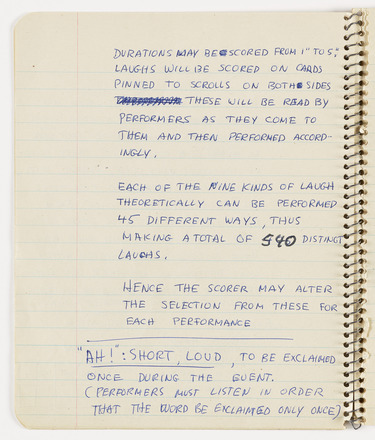 DURATIONS MAY BE SCORED FROM 1" TO 5".
LAUGHS WILL BE SCORED ON CARDS
PINNED TO SCROLLS ON BOTH SIDES
THESE WILL BE READ BY
PERFORMERS AS THEY COME TO
THEM AND THEN PERFORMED ACCORD-
INGLY.
EACH OF THE NINE KINDS OF LAUGH
THEORETICALLY CAN BE PERFORMED
45 DIFFERENT WAYS, THUS
MAKING A TOTAL OF 540 DISTINCT
LAUGHS.
HENCE THE SCORER MAY ALTER
THE SELECTION FROM THESE FOR
EACH PERFORMANCE
"AH!": SHORT, LOUD, TO BE EXCLAIMED
ONCE DURING THE EVENT.
(PERFORMERS MUST LISTEN IN ORDER
THAT THE WORD BE EXCLAIMED ONLY ONCE)